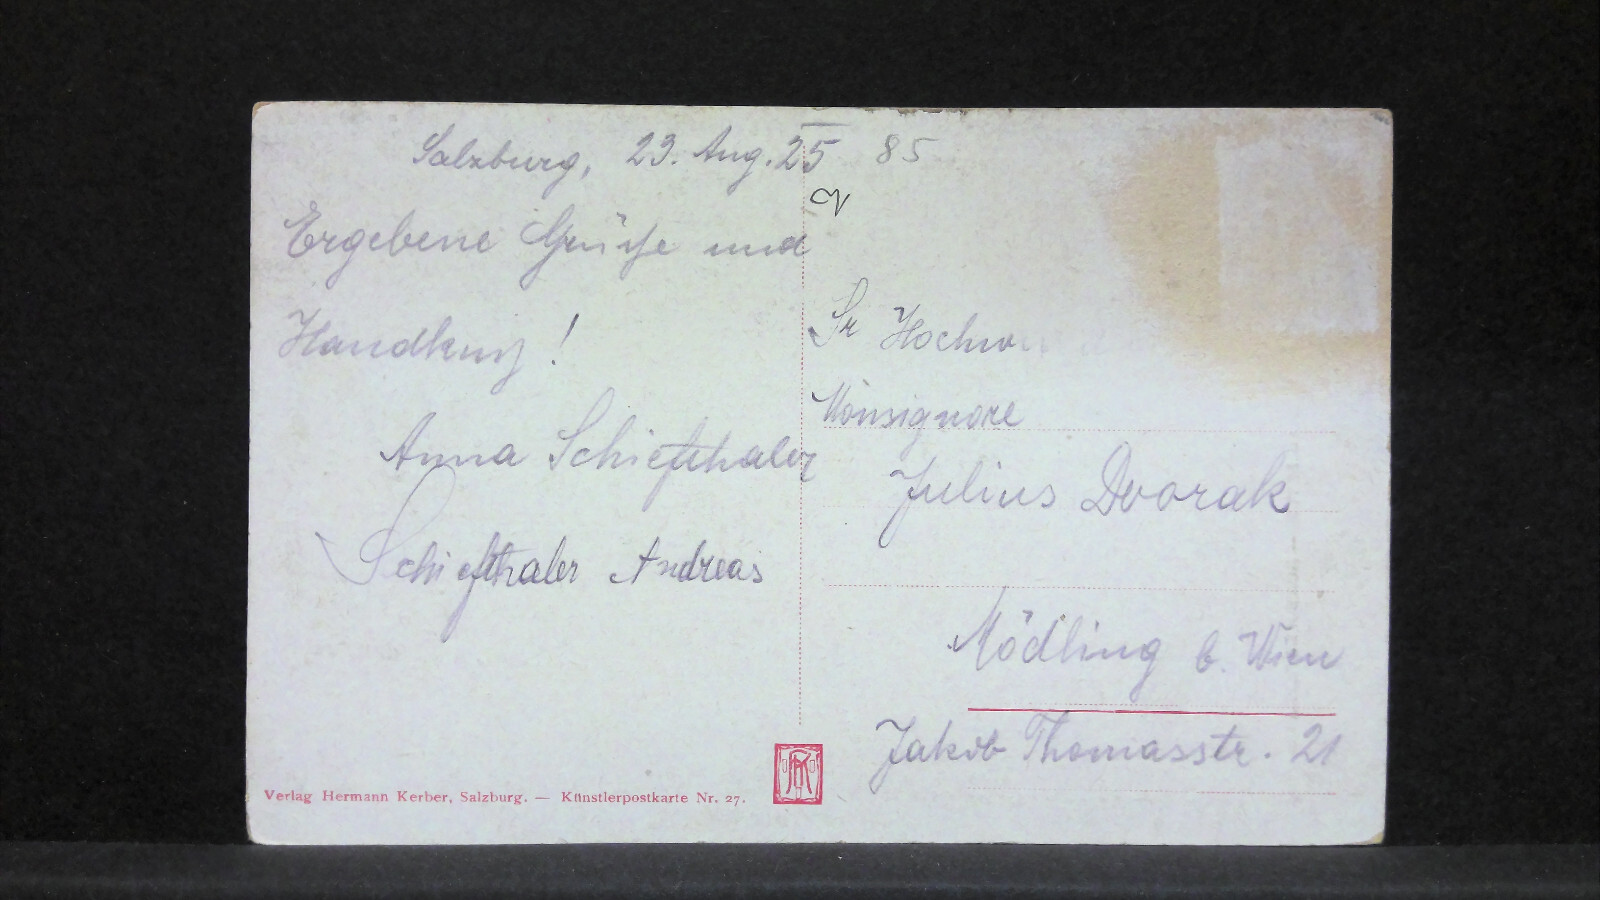 Salzburg, 23. Aug. 25 85
Ergebene Grüße und
Handkuß!
Anna Schiefthaler
Schiefthaler Andreas
Sr Hochw
Monsignore
Julius Dvorak
Mödling b. Wien
Jakob Thomasstr. 21
Verlag Hermann Kerber, Salzburg. — Künstlerpostkarte Nr. 27.